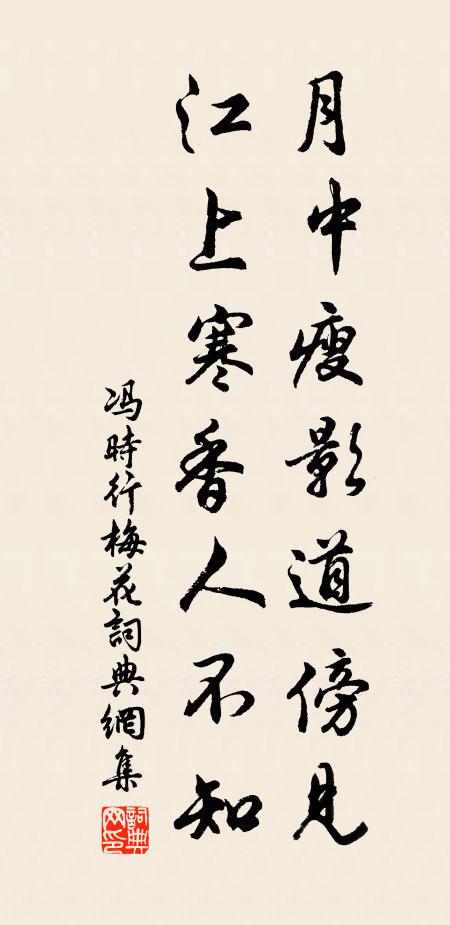 月中瘦影道傍見
江上寒香人不知
冯時行梅花詞典網集
詞典网印